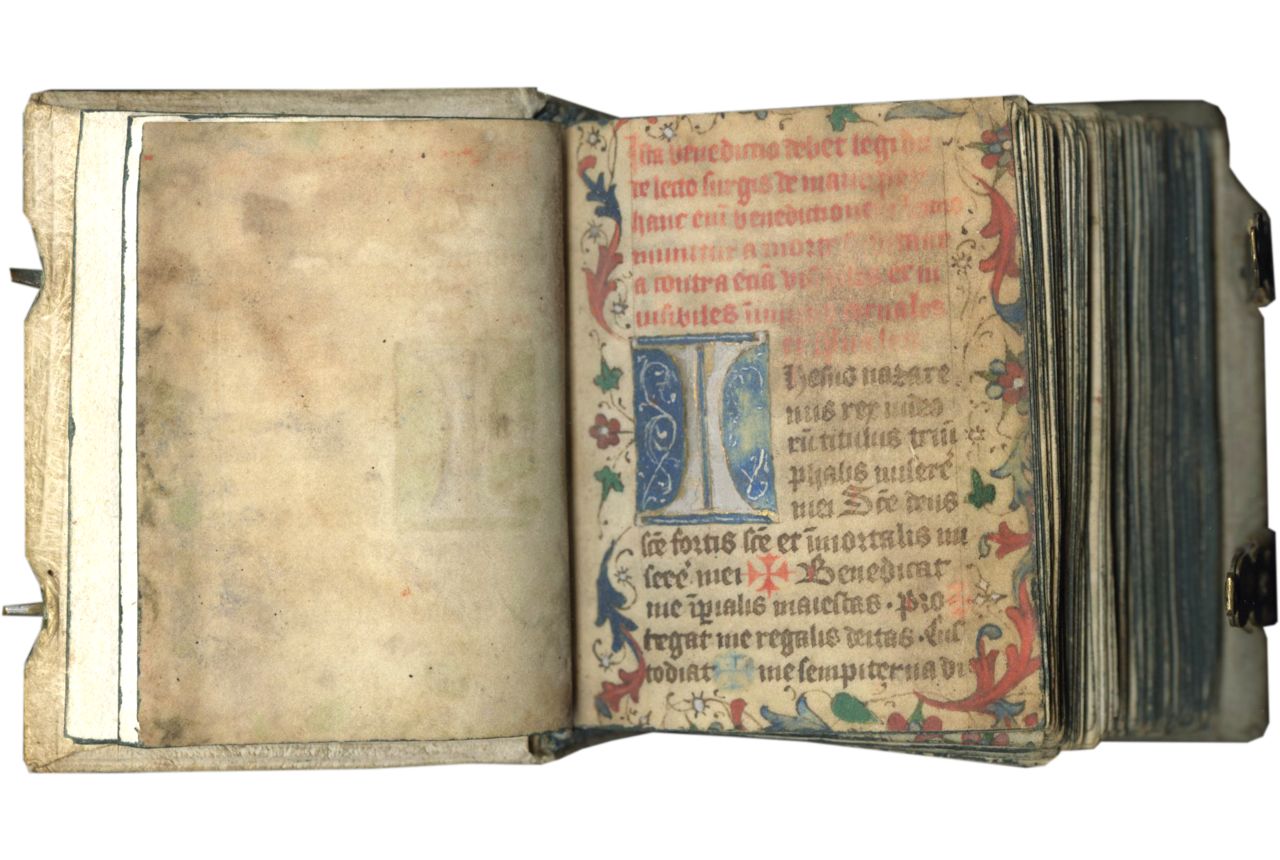 Ista benedictio debet legi du
de lecto surgis de mane per
hanc eni̅ benedictione̅
munitur a morte
a contra etia̅ visibiles et in
uisibiles
Ihesus nazare
nus rex iudeo
ru̅ titulus triu̅
phalis misere
mei Sc̅e deus
sc̅e fortis sc̅e et i̅mortalis mi
sere mei ✠ Benedicat
me i̅p̲ialis maiestas · Pro
tegat me regalis deitas · Cus
todiat ✠ me sempiterna di